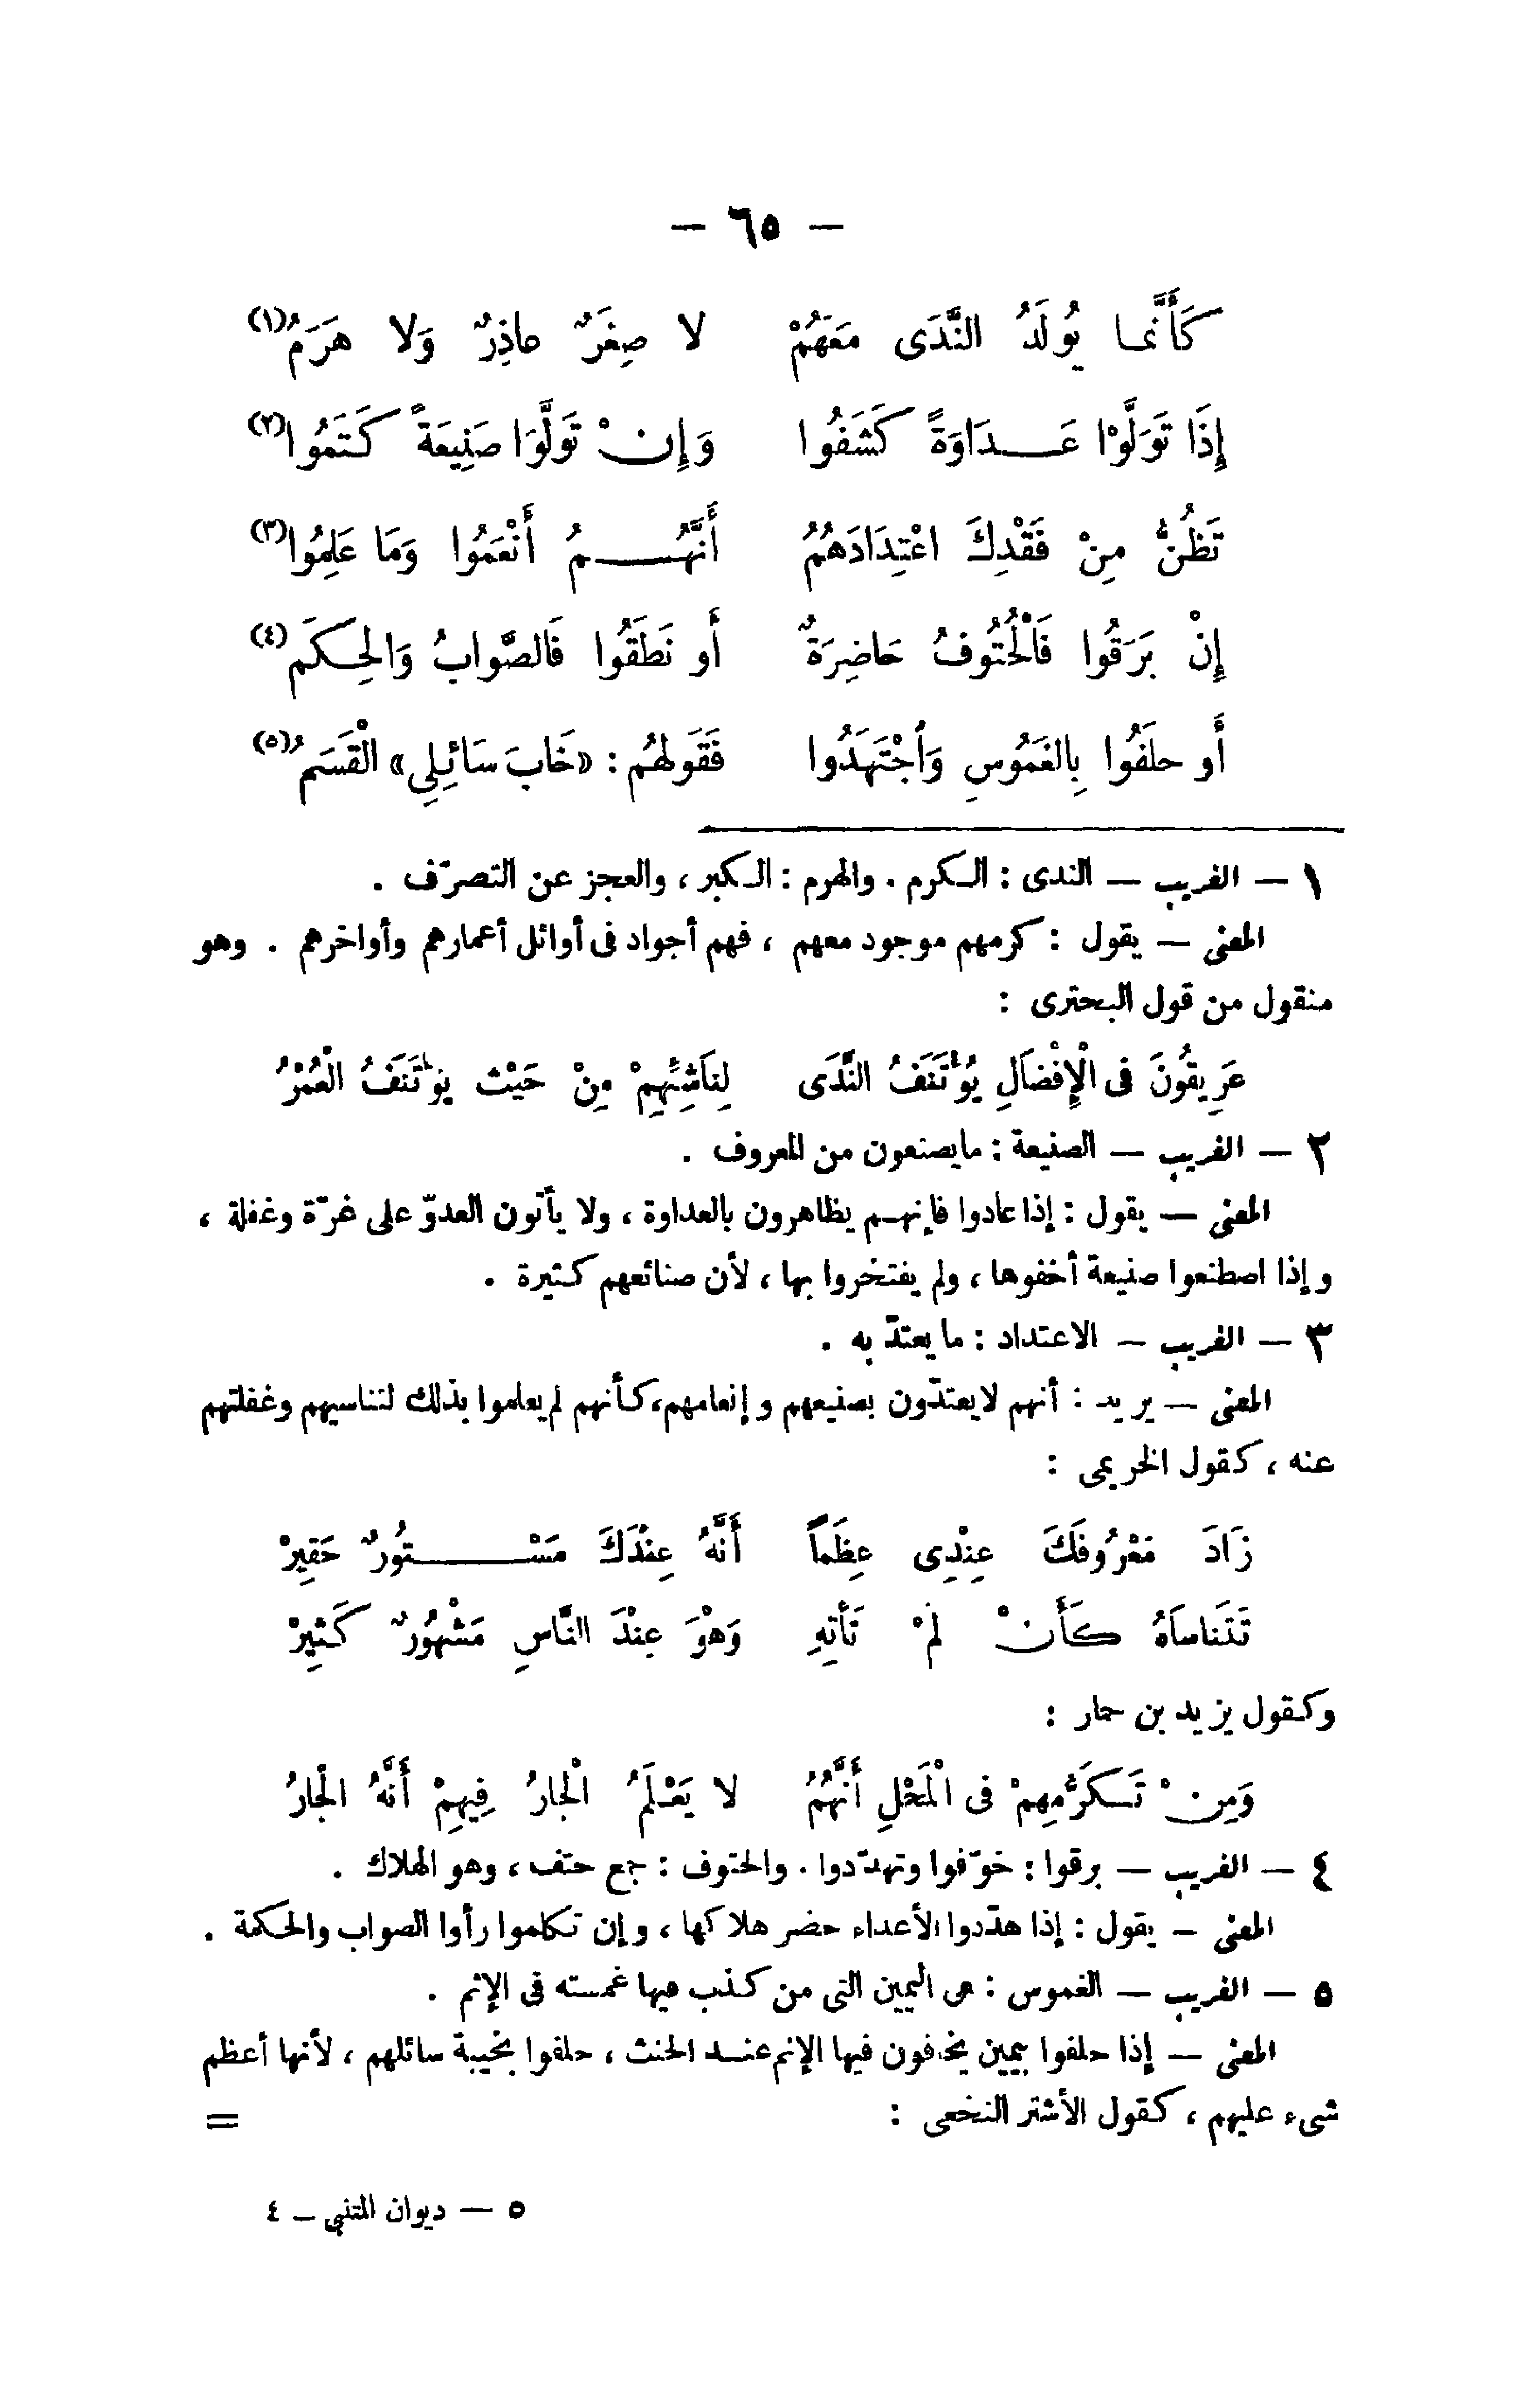 — ٦٥ —
كَأَنَّما يُولَدُ النَّدَى مَعَهُمْ لا صِغَرٌ عاذِرٌ وَلا هَرَمُ(١)
إِذَا تَوَلَّوْا عَـــدَاوَةً كَشَفُوا وَإِنْ تَوَلَّوَا صَنِيعَةً كَتَمُوا(٢)
تَظُنُّ مِنْ فَقْدِكَ اعْتِدَادَهُمُ أَنَّهُـــمُ أَنْعَمُوا وَمَا عَلِمُوا(٣)
إِنْ بَرَقُوا فَالْحُتُوفُ حَاضِرَةٌ أَو نَطَقُوا فَالصَّوابُ وَالحِكَم(٤)
أَو حلَفُوا بِالغَمُوسِ وَاجْتَهَدُوا فَقَولهُم : «خَابَ سَائِلِى» الْقَسَمُ(٥)
١ — الغريب — الندى : الكرم . والهرم : الكبر ، والعجز عن التصرّف .
المعنى — يقول : كرمهم موجود معهم ، فهم أجواد فى أوائل أعمارهم وأواخرهم . وهو
منقول من قول البحترى :
عَرِيقُونَ فى الْإِفْضَالِ يُؤْتَنَفُ النَّدَى لِنَاشِئِهِمْ مِنْ حَيْث يؤْتَنَفُ الْعُمْرُ
٢ — الغريب — الصنيعة : مايصنعون من المعروف .
المعنى — يقول : إذا عادوا فإنهـم يظاهرون بالعداوة ، ولا يأتون العدوّ على غرّة وغفلة ،
وإذا اصطنعوا صنيعة أخفوها ، ولم يفتخروا بها ، لأن صنائعهم كثيرة .
٣ — الغريب — الاعتداد : ما يعتدّ به .
المعنى — يريد : أنهم لايعتدّون بصنيعهم وإنعامهم، كأنهم لم يعلموا بذلك لتناسيهم وغفلتهم
عنه ، كقول الخريمى :
زَادَ مَعْرُوفَكَ عِنْدِى عِظَماً أَنَّهُ عِنْدَكَ مَسْـــتُورٌ حَقِيرْ
تَتَناساَهُ كَأَنْ لَمْ تَأتهِ وَهْوَ عِنْدَ النَّاسِ مَشْهُورٌ كَثِيرْ
وكقول يزيد بن حمار :
وَمِنْ تَكَرُّمِهِمْ فى الْمَحْلِ أَنَّهُمُ لا يَعْلَمُ الْجارُ فِيهِمْ أَنَّهُ الْجَارُ
٤ — الغريب — برقوا : خوّفوا وتهدّدوا . والحتوف : جمع حتف ، وهو الهلاك .
المعنى — يقول : إذا هدّدوا الأعداء حضر هلاكها ، وإن تكلموا رأوا الصواب والحكمة .
٥ — الغريب — الغموس : هى اليمين التى من كذب فيها غمسته فى الإثم .
المعنى — إذا حلفوا بيمين يخافون فيها الإثم عنـد الحنث ، حلفوا بخيبة سائلهم ، لأنها أعظم
شىء عليهم ، كقول الأشتر النخعى : =
٥ — ديوان المتنبى — ٤